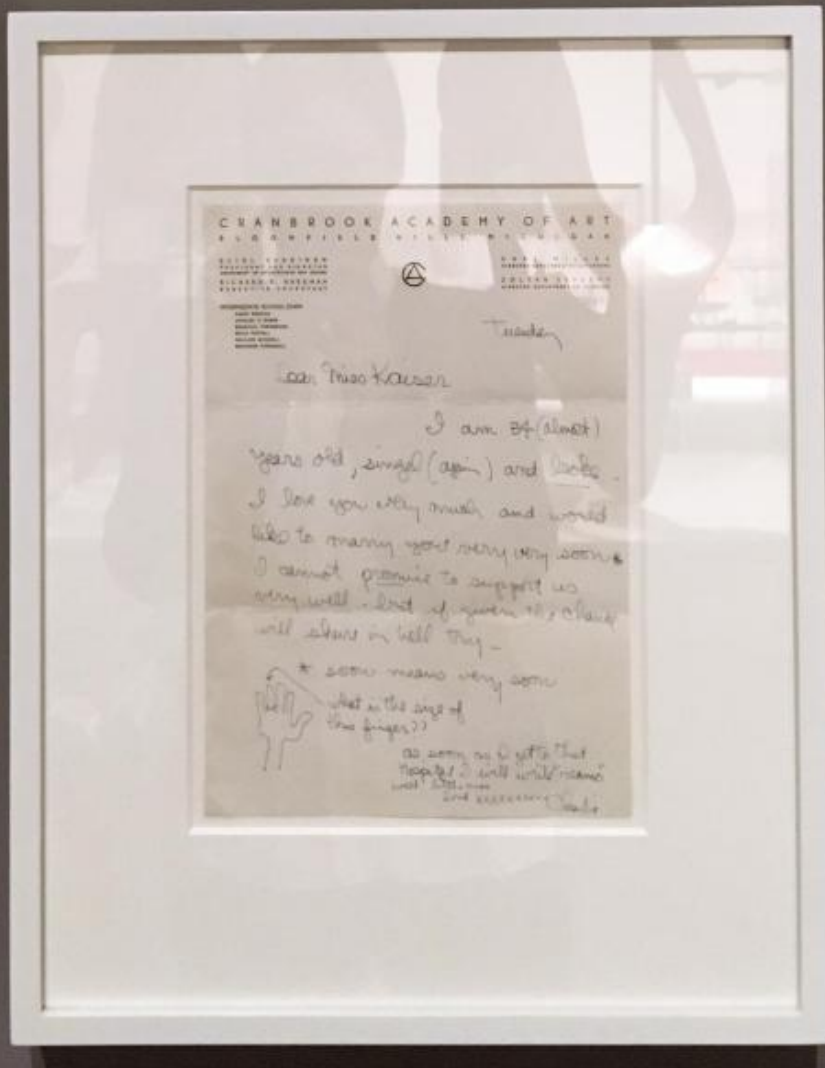 CRANBROOK ACADEMY OF ART
BLOOMFIELD HILLS MICHIGAN
RICHARD P. RASEMAN
Tuesday
Dear Miss Kaiser
I am 34 (almost)
years old, singel (again) and broke.
I love you very much and would
like to marry you very very soon*
I cannot promise to support us
very well. but if given the chance
will shure in hell try-
* soon means very soon
what is the size of
this finger??
as soon as I get to that
hospital I will write reams
well little ones
love xxxxxxxxxx